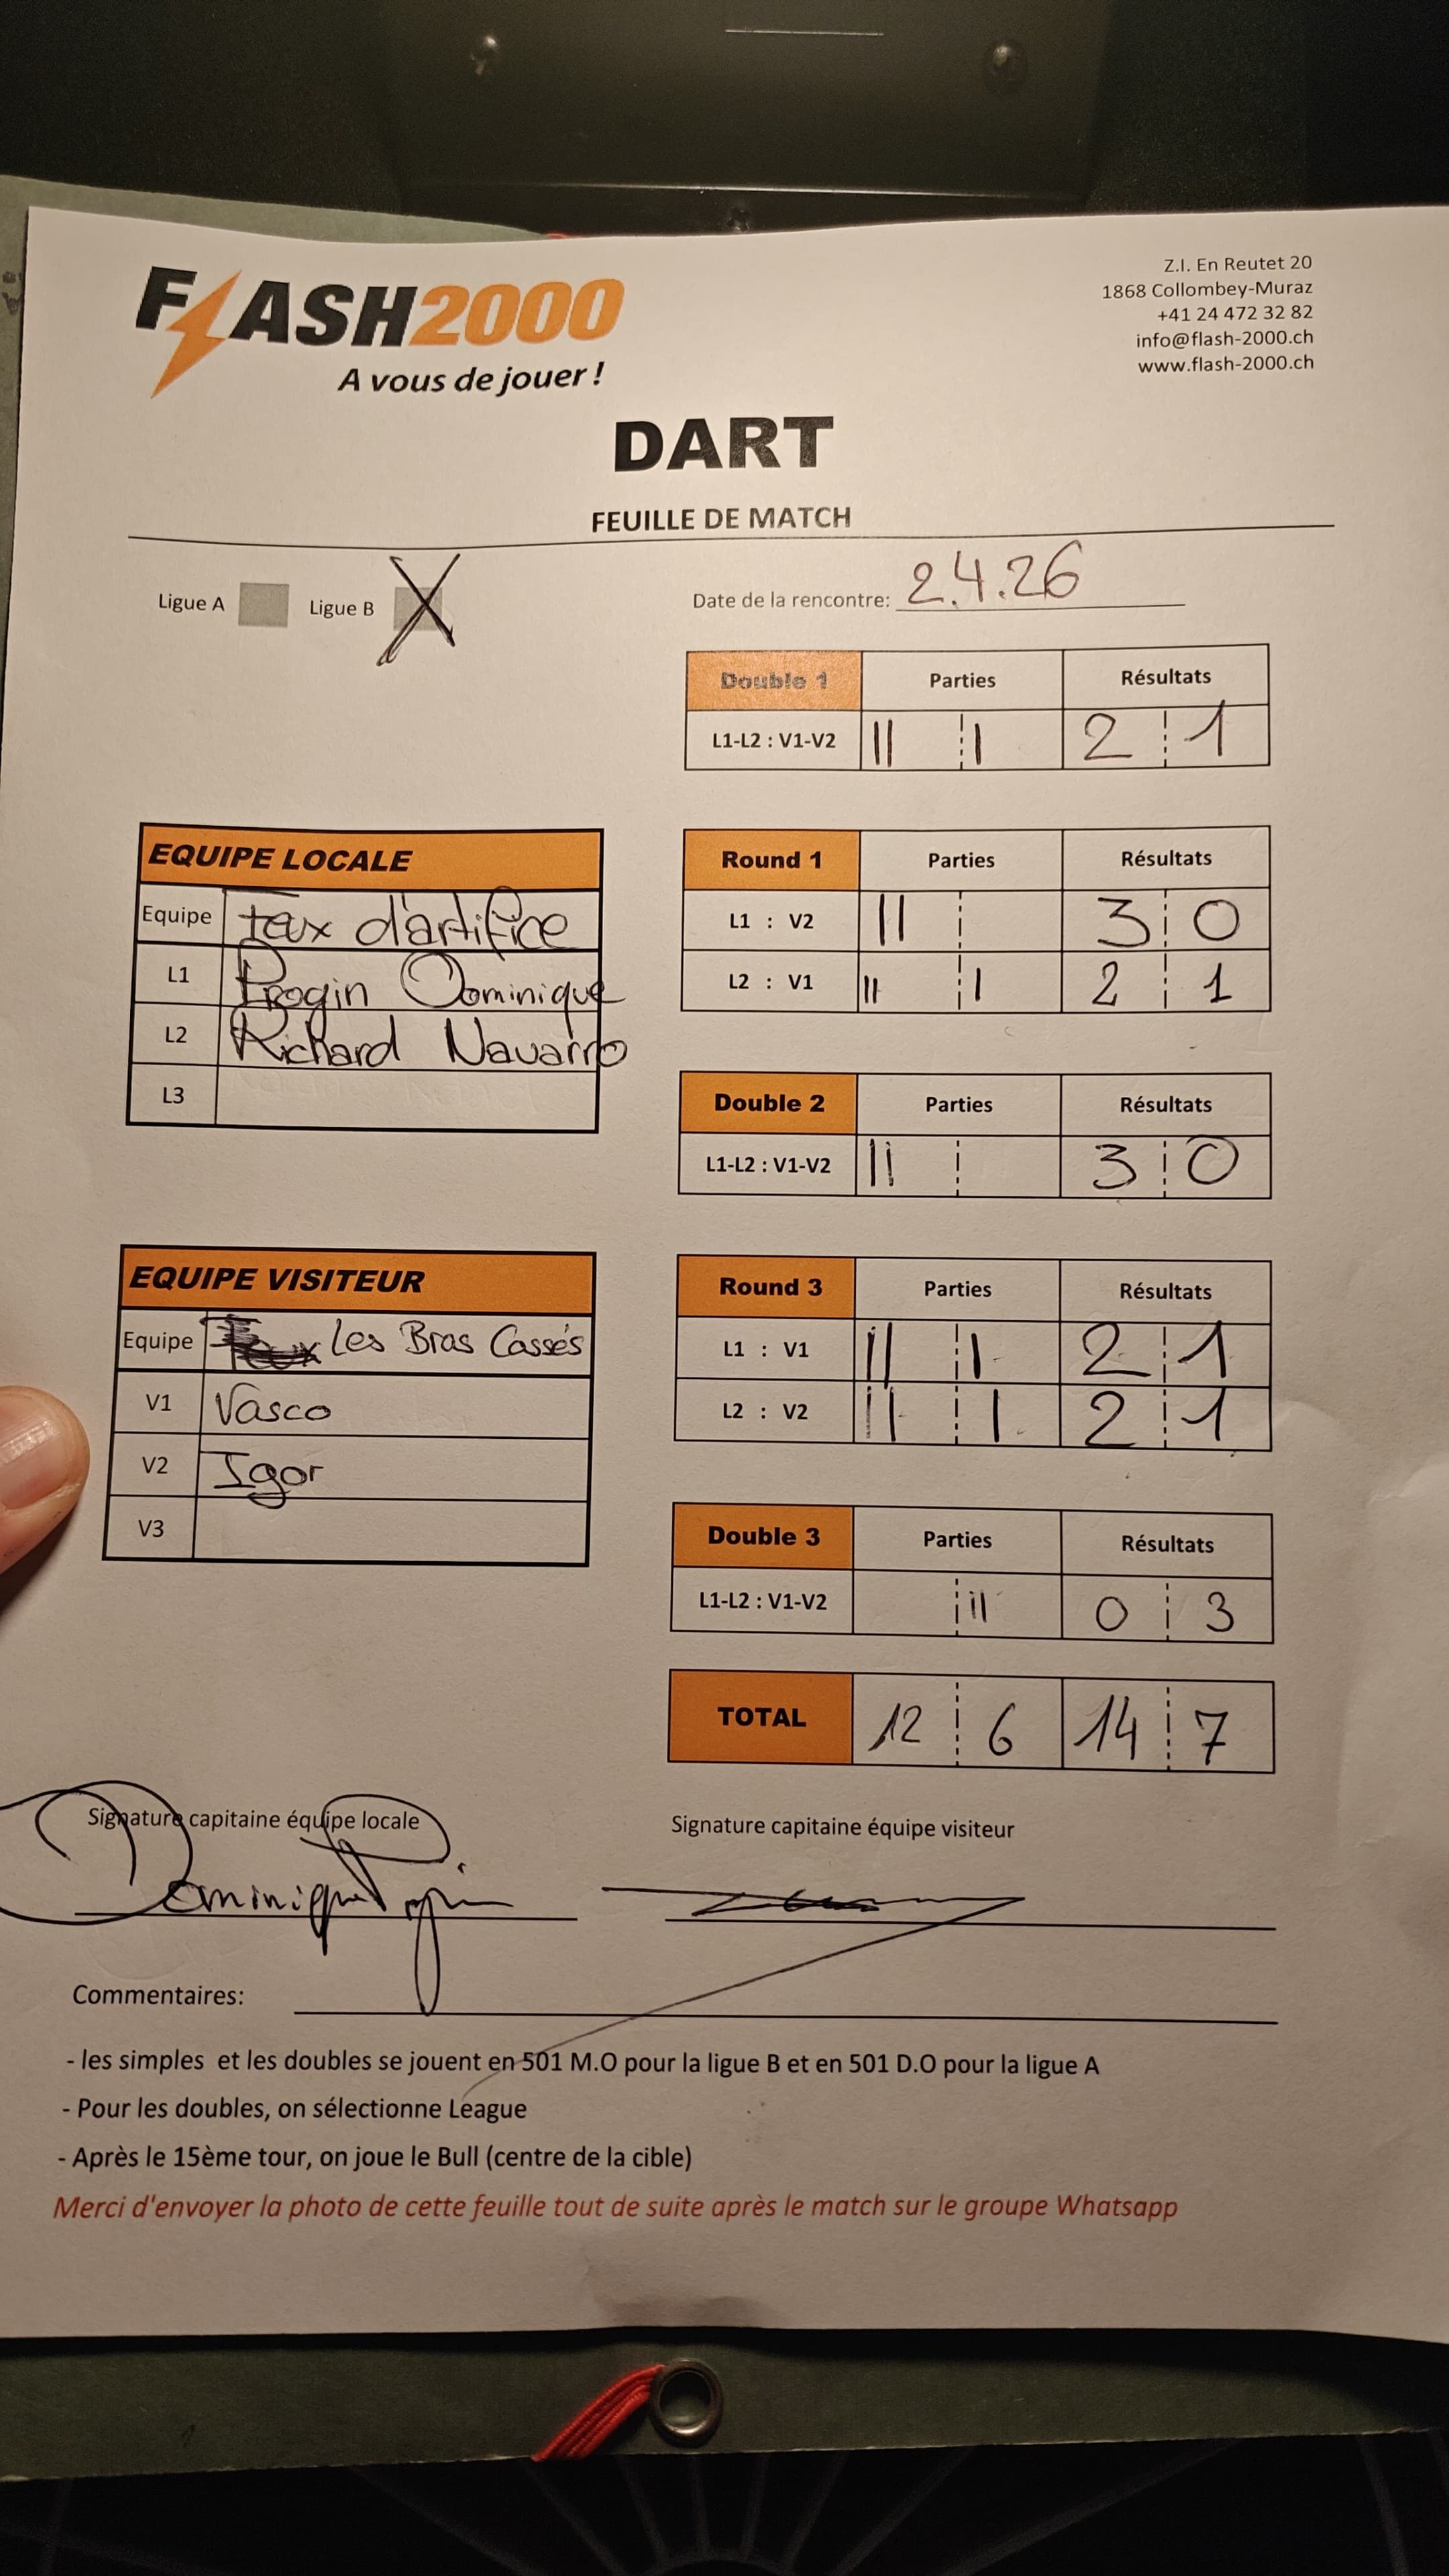 FLASH2000
A vous de jouer !
Z.I. En Reutet 20
1868 Collombey-Muraz
+41 24 472 32 82
info@flash-2000.ch
www.flash-2000.ch
DART
FEUILLE DE MATCH
Ligue A Ligue B X
Date de la rencontre: 2.4.26
Double 1 Parties Résultats
L1-L2 : V1-V2 || | 2 1
EQUIPE LOCALE
Equipe feux d'artifice
L1 Progin Dominique
L2 Richard Navarro
L3
Round 1 Parties Résultats
L1 : V2 || 3 0
L2 : V1 || | 2 1
Double 2 Parties Résultats
L1-L2 : V1-V2 || 3 0
EQUIPE VISITEUR
Equipe Les Bras Cassés
V1 Vasco
V2 Igor
V3
Round 3 Parties Résultats
L1 : V1 || | 2 1
L2 : V2 || | 2 1
Double 3 Parties Résultats
L1-L2 : V1-V2 || 0 3
TOTAL 12 6 14 7
Signature capitaine équipe locale
Signature capitaine équipe visiteur
Dominique Progin
Commentaires:
- les simples et les doubles se jouent en 501 M.O pour la ligue B et en 501 D.O pour la ligue A
- Pour les doubles, on sélectionne League
- Après le 15ème tour, on joue le Bull (centre de la cible)
Merci d'envoyer la photo de cette feuille tout de suite après le match sur le groupe Whatsapp